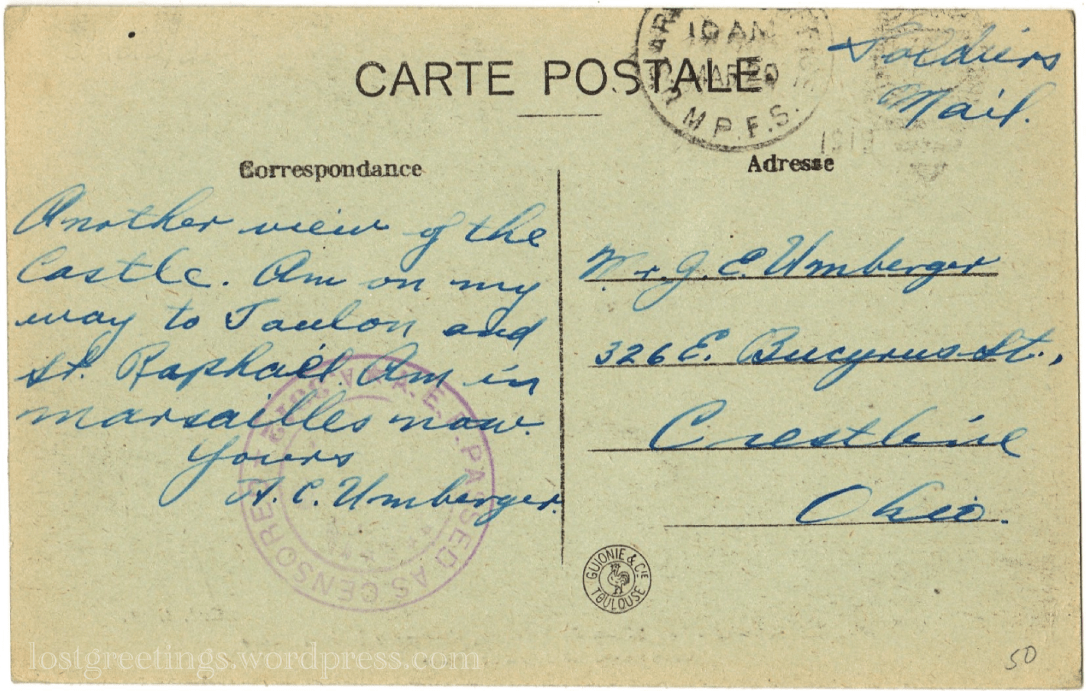 10 AM
MAR 20
M.P.E.S.
1919
Soldiers
Mail.
CARTE POSTALE
Correspondance
Adresse
Another view of the
Castle. Am on my
way to Toulon and
St. Raphaël. Am in
marsailles now.
Yours
A. C. Umberger.
Mr. G. E. Umberger
326 E. Bucyrus St.,
Crestline
Ohio.
A.E.F. PASSED AS CENSORED
GUIONIE & CIE
TOULOUSE
lostgreetings.wordpress.com
50